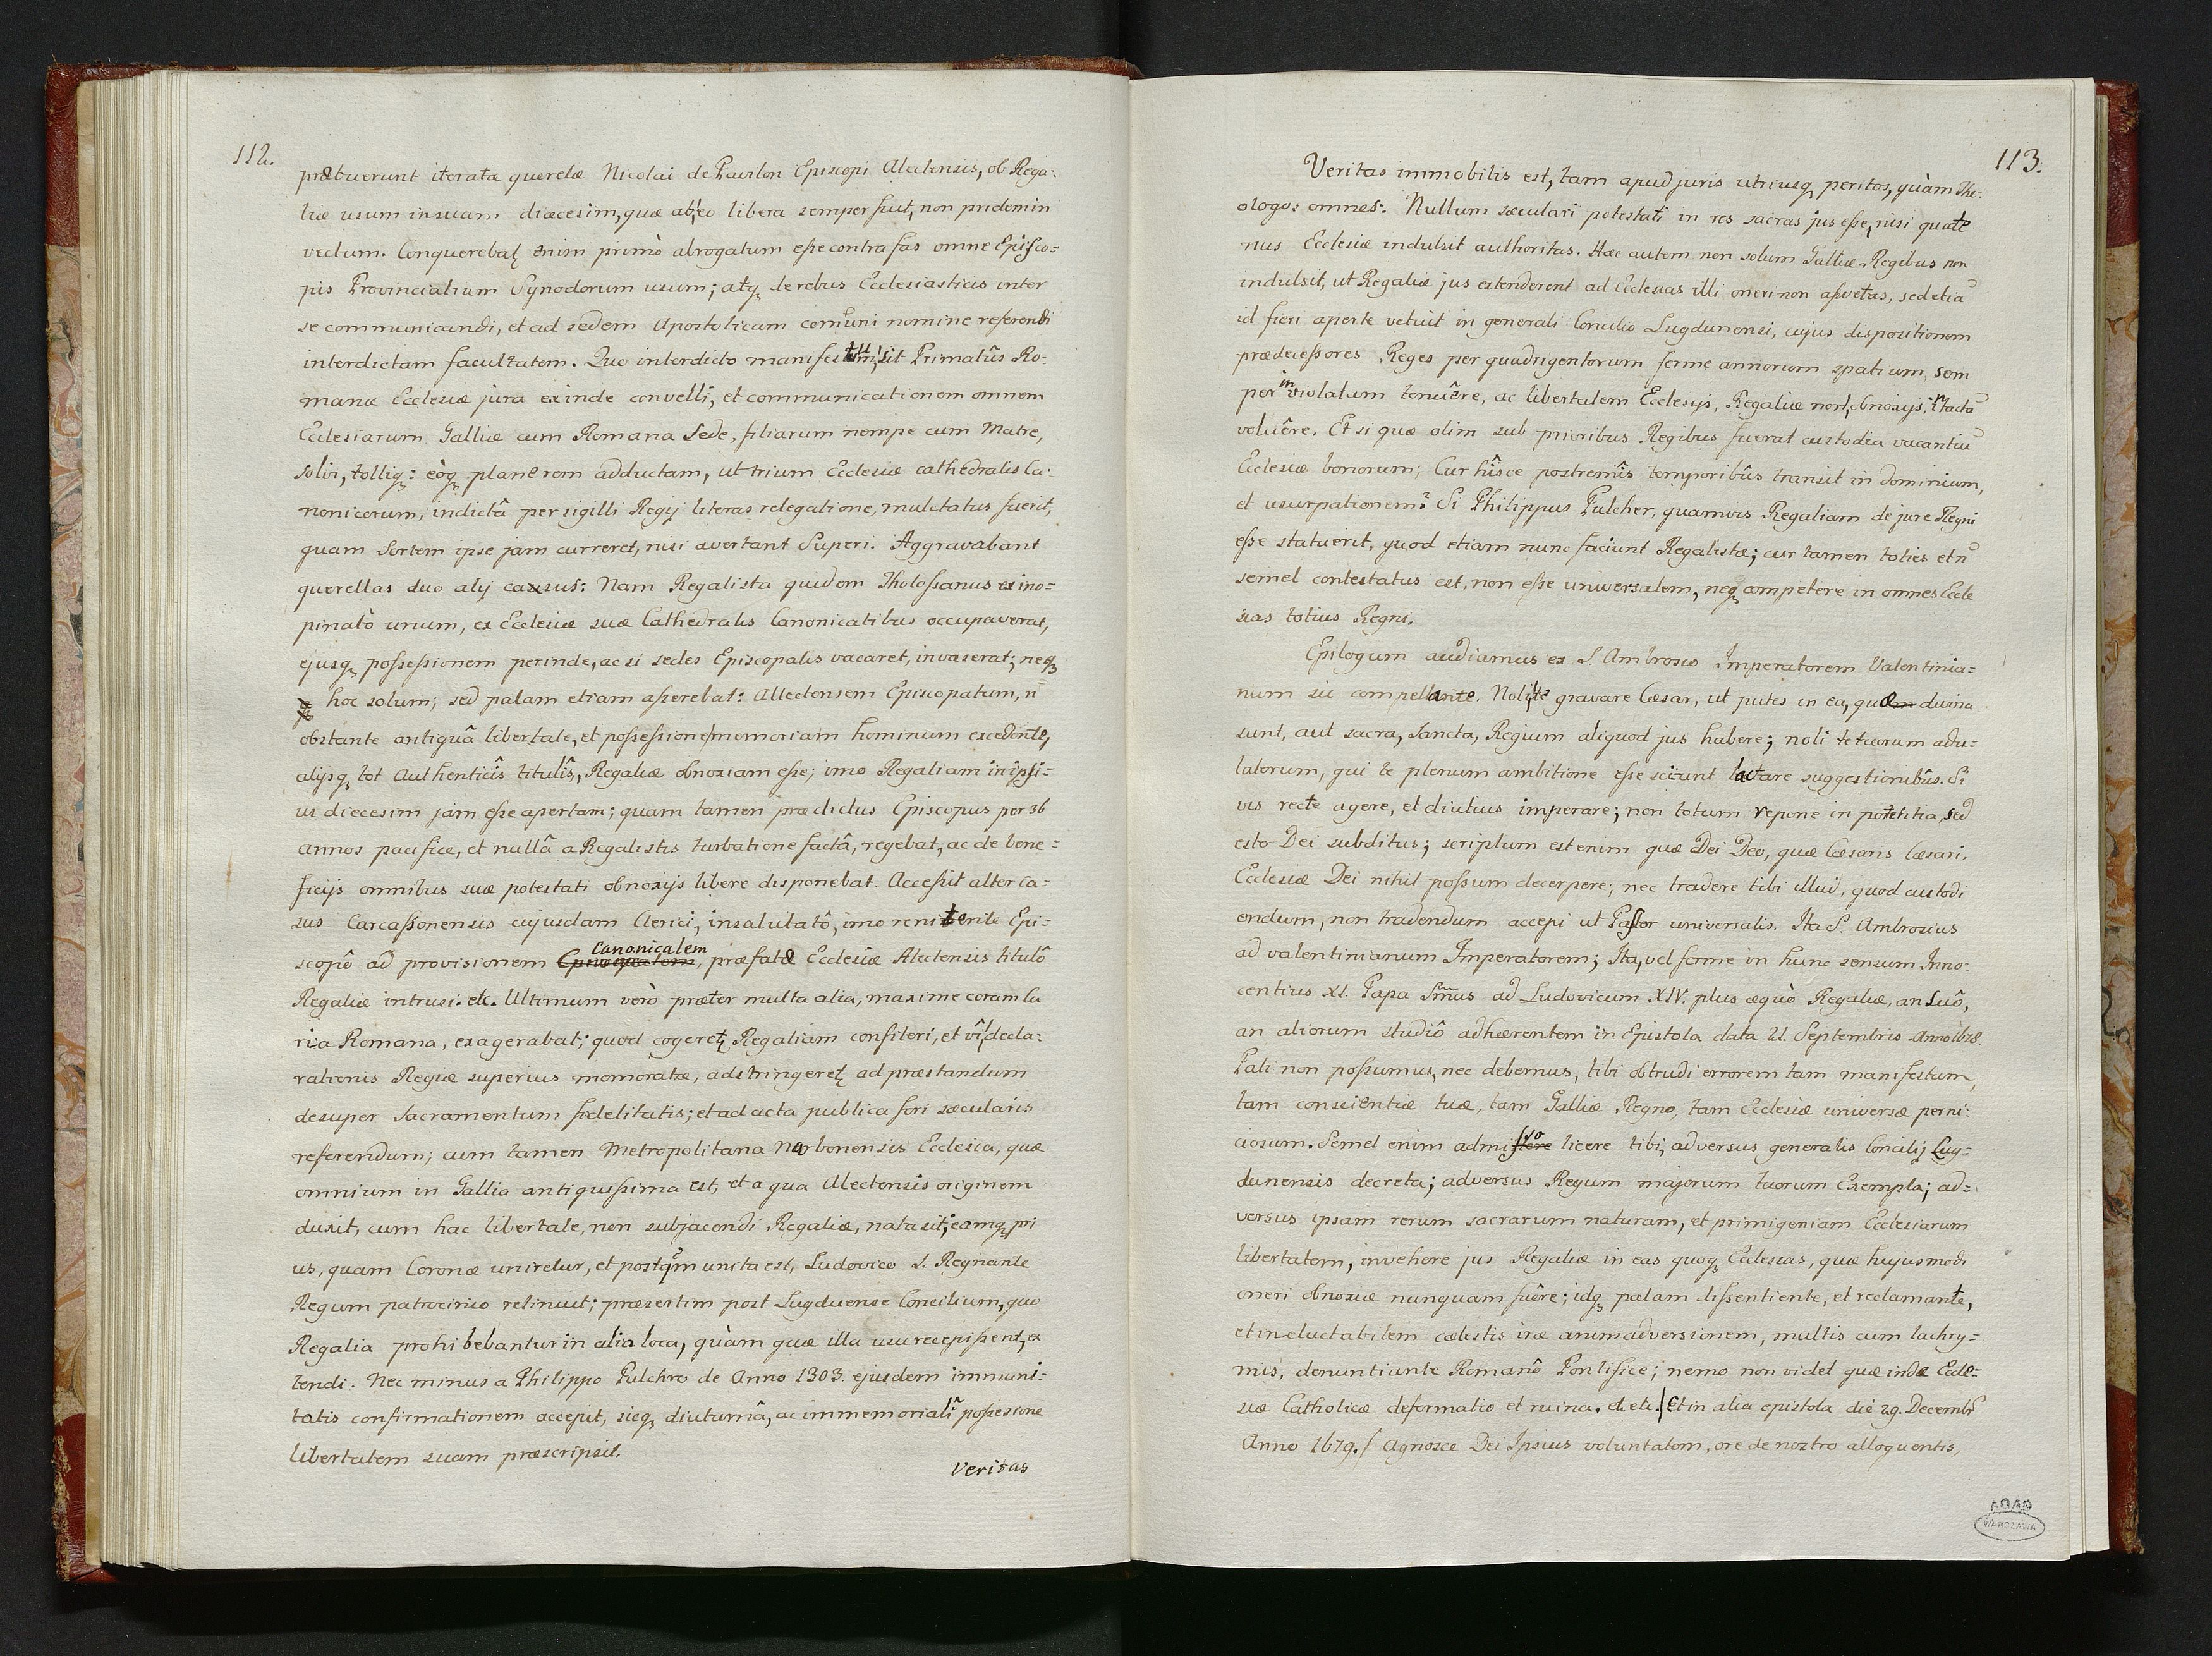 112.
præbuerunt iteratæ querelæ Nicolai de Pavilon Episcopi Alectensis, ob Rega:
liæ usum in suam diæcesim, quæ ab eo libera semper fuit, non pridem in
vectum. Conquerebatʒ enim primò abrogatum eſse contra fas omne Epiſco=
pis Provincialium Synodorum usum; atqʒ de rebus Ecclesiasticis inter
se communicandi, et ad sedem Apostolicam com̃uni nomine referendi
interdictam facultatem. Quo interdicto manifestu͂ sit Primatûs Ro-
manæ Ecclesiæ jura exinde convelli, et communicationem omnem
Ecclesiarum Galliæ cum Romana Sede, filiarum nempe cum Matre,
solvi, tolliqʒ: eòqʒ plane rem adductam, ut trium Ecclesiæ cathedralis Ca:
nonicorum, indictâ per sigilli Regij literas relegatione, mulctatus fuerit,
quam Sortem ipse jam curreret, nisi avertant Superi. Aggravabant
querellas duo alij casus: Nam Regalista quidem Tholoſsanus ex ino=
pinatò unum, ex Ecclesiæ suæ Cathedralis Canonicatibus occupaverat,
ejusqʒ poſseſsionem perinde, ac si sedes Episcopalis vacaret, invaserat; neqʒ
hoc solum; sed palam etiam aſserebat: Allectensem Episcopatum, n̄
obstante antiquâ libertate, et poſseſsione memoriam hominum excedente,
alijsqʒ tot Authenticîs titulîs, Regaliæ obnoxiam eſse; imo Regaliam in ipſi=
us diecesim jam eſse apertam; quam tamen prædictus Episcopus per 36
annos pacifice, et nullâ a Regalistis turbatione factâ, regebat, ac de bene=
ficijs omnibus suæ potestati obnoxijs libere disponebat. Acceſsit alter ca=
sus Carcaſsonensis cujusdam Clerici, insalutatô, imo renitente Epi=
scopô ad provisionem Canonicalem, præfatæ Ecclesiæ Alectensis titulô
Regaliæ intrusi. etc. Ultimum verò præter multa alia, maxime coram Cu
ria Romana, exagerabat; quod cogeretʒ Regaliam confiteri, et vî decla:
rationis Regiæ superius memoratæ, adstringeretʒ ad præstandum
desuper Sacramentum fidelitatis; et ad acta publica fori sæcularis
referendum; cum tamen Metropolitana Narbonensis Ecclesia, quæ
omnium in Gallia antiquiſsima est, et a qua Alectensis originem
duxit, cum hac libertate, non subjacendi Regaliæ, nata sit; eamqʒ pri
us, quam Coronæ uniretur, et postq̃m unita est, Ludovico S. Regnante
Regum patrocinio retinuit; præsertim post Lugduense Concilium, quo
Regalia prohibebantur in alia loca, quàm quæ illa usu recepiſsent, ex
tendi. Nec minus a Philippo Pulchro de Anno 1303. ejusdem immuni:
tatis confirmationem accepit, sicqʒ diuturnâ, ac immemoriali poſsesione
libertatem suam præscripsit.
Veritas
113.
Veritas immobilis est, tam apud juris utriusqʒ peritos, quàm The:
ologos omnes. Nullum sæculari potestati in res sacras jus eſse, nisi quate
nus Ecclesiæ indulsit authoritas. Hæc autem non solum Galliæ Regibus non
indulsit, ut Regaliæ jus extenderent ad Ecclesias illi oneri non aſsvetas, sed etia᷉
id fieri aperte vetuit in generali Concilio Lugdunensi, cujus dispositionem
prædeceſsores Reges per quadrigentorum ferme annorum spatium, sem
per inviolatum tenuêre, ac libertatem Ecclesijs, Regaliæ non obnoxijs, intactã
voluêre. Et si quæ olim sub prioribus Regibus fuerat custodia vacantiũ
Ecclesiæ bonorum; Cur hîsce postremîs temporibûs transit in dominium,
et usurpationem? Si Philippus Pulcher, quamvis Regaliam de jure Regni
eſse statuerit, quod etiam nunc faciunt Regalistæ; cur tamen toties et n̄
semel contestatus est, non eſse universalem, neqʒ competere in omnes Eccle
sias totius Regni.
Epilogum audiamus ex S. Ambrosio Imperatorem Valentinia=
num sic compellante. Noli te gravare Cæsar, ut putes in ea, quæ divina
sunt, aut sacra, Sancta, Regium aliquod jus habere; noli te tuorum adu=
latorum, qui te plenum ambitione eſse sciunt lactare suggestionibûs. Si
vis recte agere, et diutius imperare; non totum repone in potentia, sed
esto Dei subditus; scriptum est enim quæ Dei Deo, quæ Cæsaris Cæsari.
Ecclesiæ Dei nihil poſsum decerpere; nec tradere tibi illud, quod custodi
endum, non tradendum accepi ut Paſtor universalis. Ita S. Ambrosius
ad valentinianum Imperatorem; Ita, vel ferme in hunc sensum Inno:
centius XI. Papa Sm̃us ad Ludovicum XIV. plus æquò Regaliæ, an Suô,
an aliorum studiô adhærentem in Epistola data 21. Septembris Anno 1678.
Pati non poſsumus, nec debemus, tibi obtrudi errorem tam manifestum,
tam conscientiæ tuæ, tam Galliæ Regno, tam Ecclesiæ universæ perni:
ciosum. Semel enim admiſso licere tibi, adversus generalis Concilij Lug=
dunensis decreta; adversus Regum majorum tuorum Exempla; ad=
versus ipsam rerum sacrarum naturam, et primigeniam Ecclesiarum
libertatem, invehere jus Regaliæ in eas quoqʒ Ecclesias, quæ hujusmodi
oneri obnoxiæ nunquam fuêre; idqʒ palam diſsentiente, et reclamante,
et ineluctabilem cælestis iræ animadversionem, multis cum lachry=
mis, denuntiante Romanô Pontifice; nemo non videt quæ inde Eccle=
siæ Catholicæ deformatio et ruina. etc etc. Et in alia epistola die 29. Decembr̃
Anno 1679. / Agnosce Dei Ipsius voluntatem, ore de nostro alloquentis,
AGAD
WARSZAWA